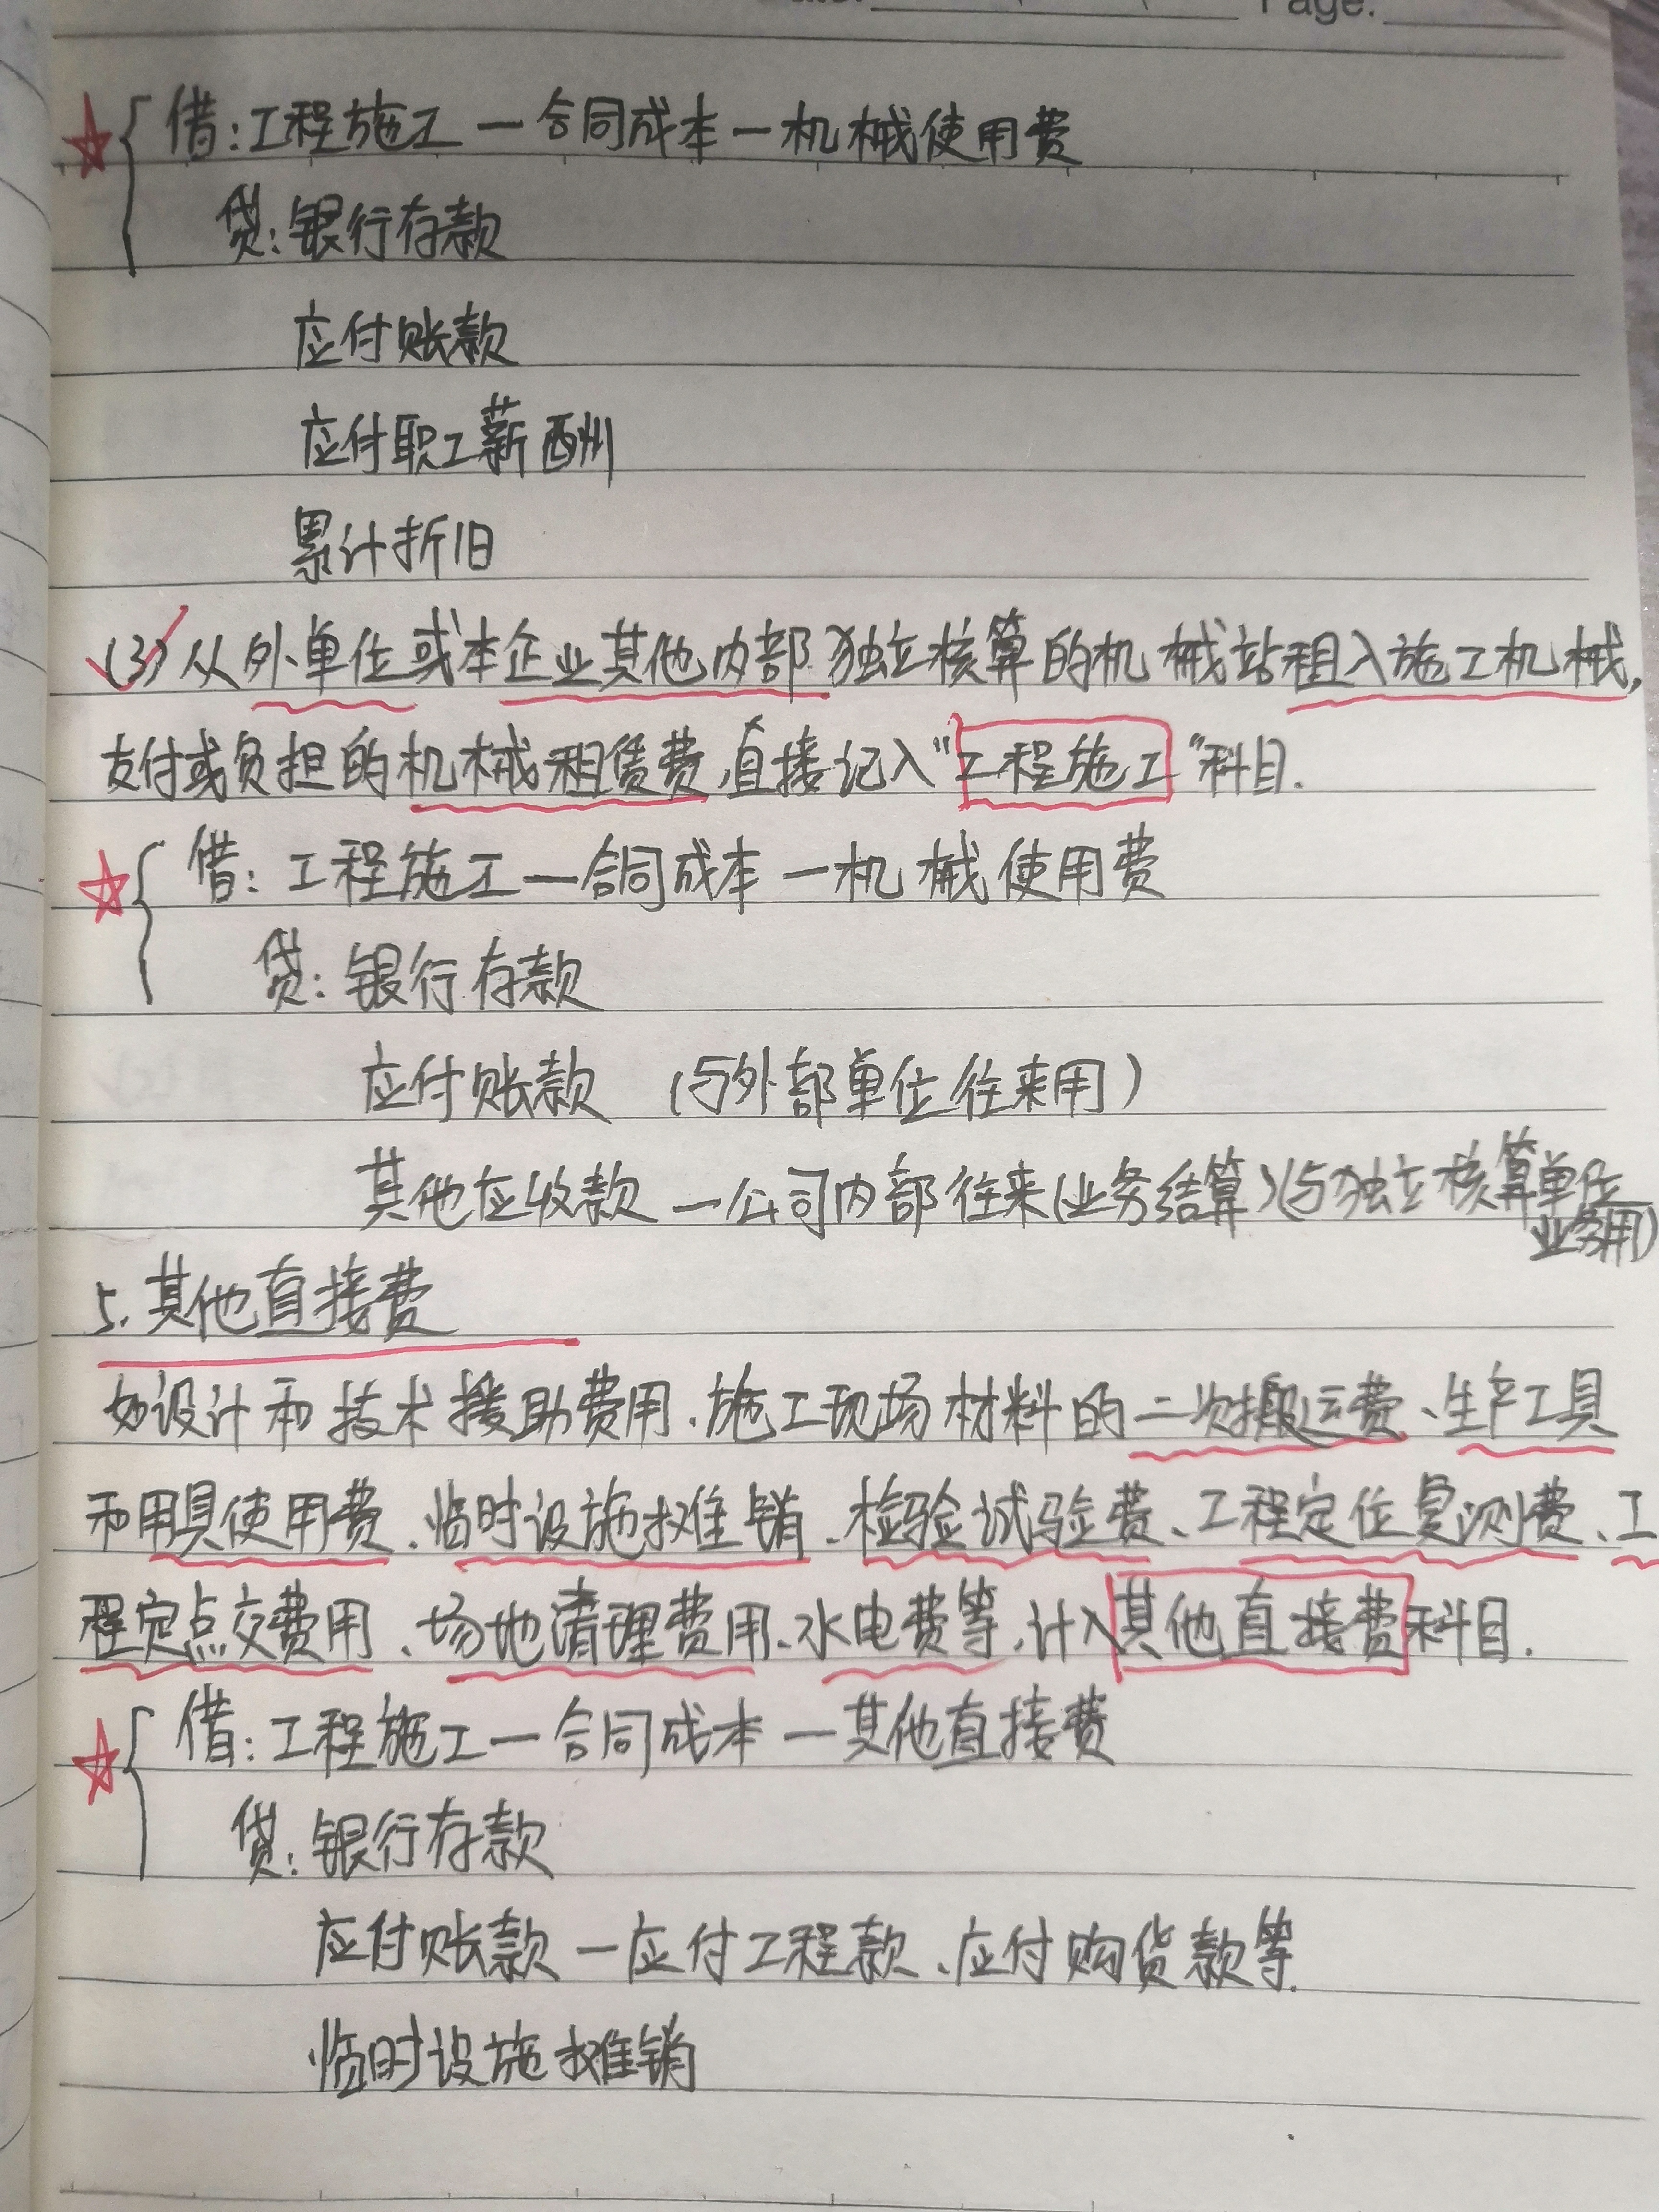 Page:
借:工程施工—合同成本—机械使用费
贷:银行存款
应付账款
应付职工薪酬
累计折旧
(3)从外单位或本企业其他内部独立核算的机械站租入施工机械,
支付或负担的机械租赁费,直接记入"工程施工"科目.
借:工程施工—合同成本—机械使用费
贷:银行存款
应付账款 (与外部单位往来用)
其他应收款—公司内部往来(业务结算)(与独立核算单位
业务用)
5.其他直接费
如设计和技术援助费用、施工现场材料的二次搬运费、生产工具
和用具使用费、临时设施摊销、检验试验费、工程定位复测费、工
程定点交费用、场地清理费用、水电费等,计入其他直接费科目.
借:工程施工—合同成本—其他直接费
贷:银行存款
应付账款—应付工程款、应付购货款等.
临时设施摊销